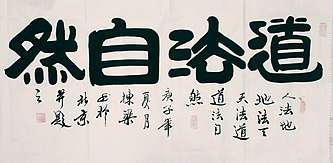 道法自然
人法地
地法天
天法道
道法自
然
庚子年
夏月
栋梁
书於
北京
并题
之